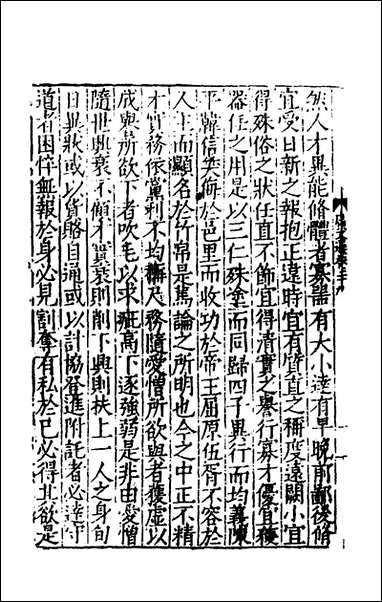 然人才異能脩體者寡器有大小達有早晚前鄙後脩
宜受日新之報抱正違時宜有質直之稱度遠闕小宜
得殊俗之狀任直不飾宜得清實之譽行寡才優宜獲
器任之用是以三仁殊塗而同歸四子異行而均義陳
平韓信笑侮於邑里而收功於帝王屈原伍胥不容於
人主而顯名於竹帛是篤論之所明也今之中正不精
才實務依黨利不均稱尺務隨愛憎所欲與者獲虛以
成譽所欲下者吹毛以求疵高下逐強弱是非由愛憎
隨世興衰不顧才實衰則削下興則扶上一人之身旬
日異狀或以貨賂自通或以計協登進附託者必達守
道者困悴無報於身必見割奪有私於己必得其欲是